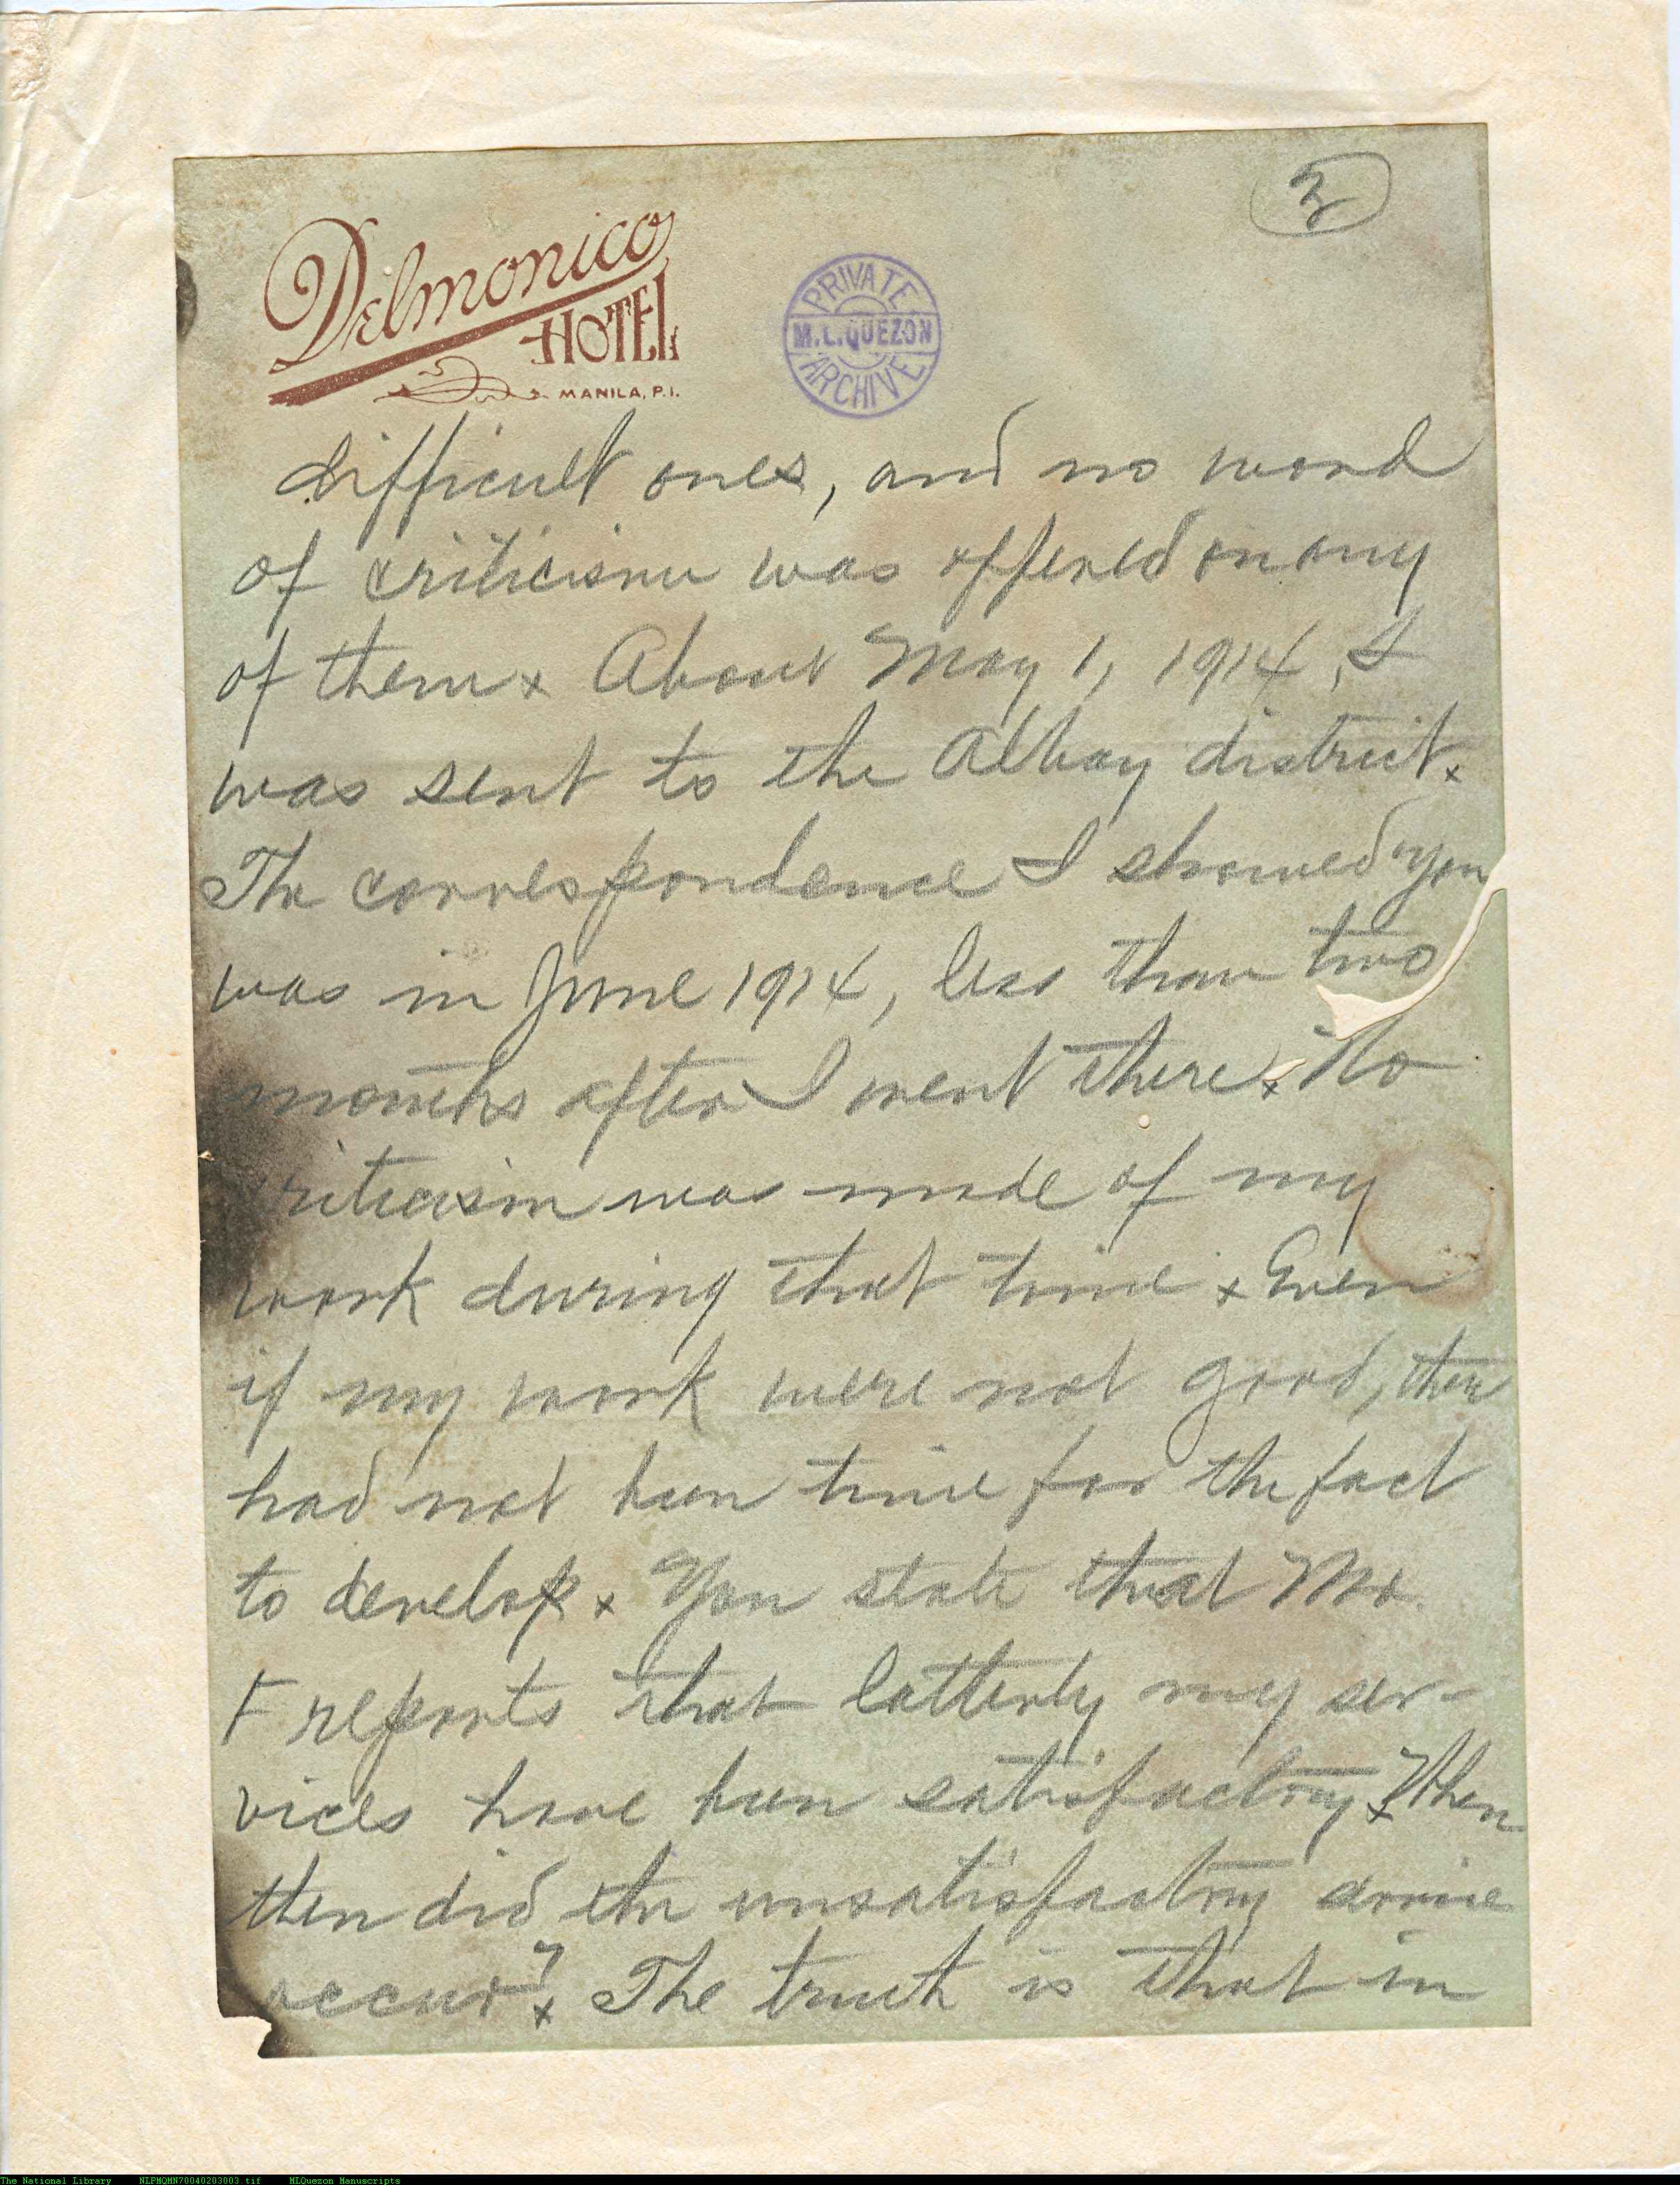 3
Delmonico
HOTEL
MANILA, P.I.
PRIVATE
M.L.QUEZON
ARCHIVE
difficult ones, and no word
of criticism was offered on any
of them x About May 1, 1914, I
was sent to the Albay district x
The correspondence I showed you
was in June 1914, less than two
months after I went there x No
criticism was made of my
work during that time x Even
if my work were not good, there
had not been time for the fact
to develop x You state that Mr.
F reports that latterly my ser-
vices have been satisfactory x When
then did the unsatisfactory
occur? x The truth is that in
The National Library NLPMQMN70040203003.tif MLQuezon Manuscripts